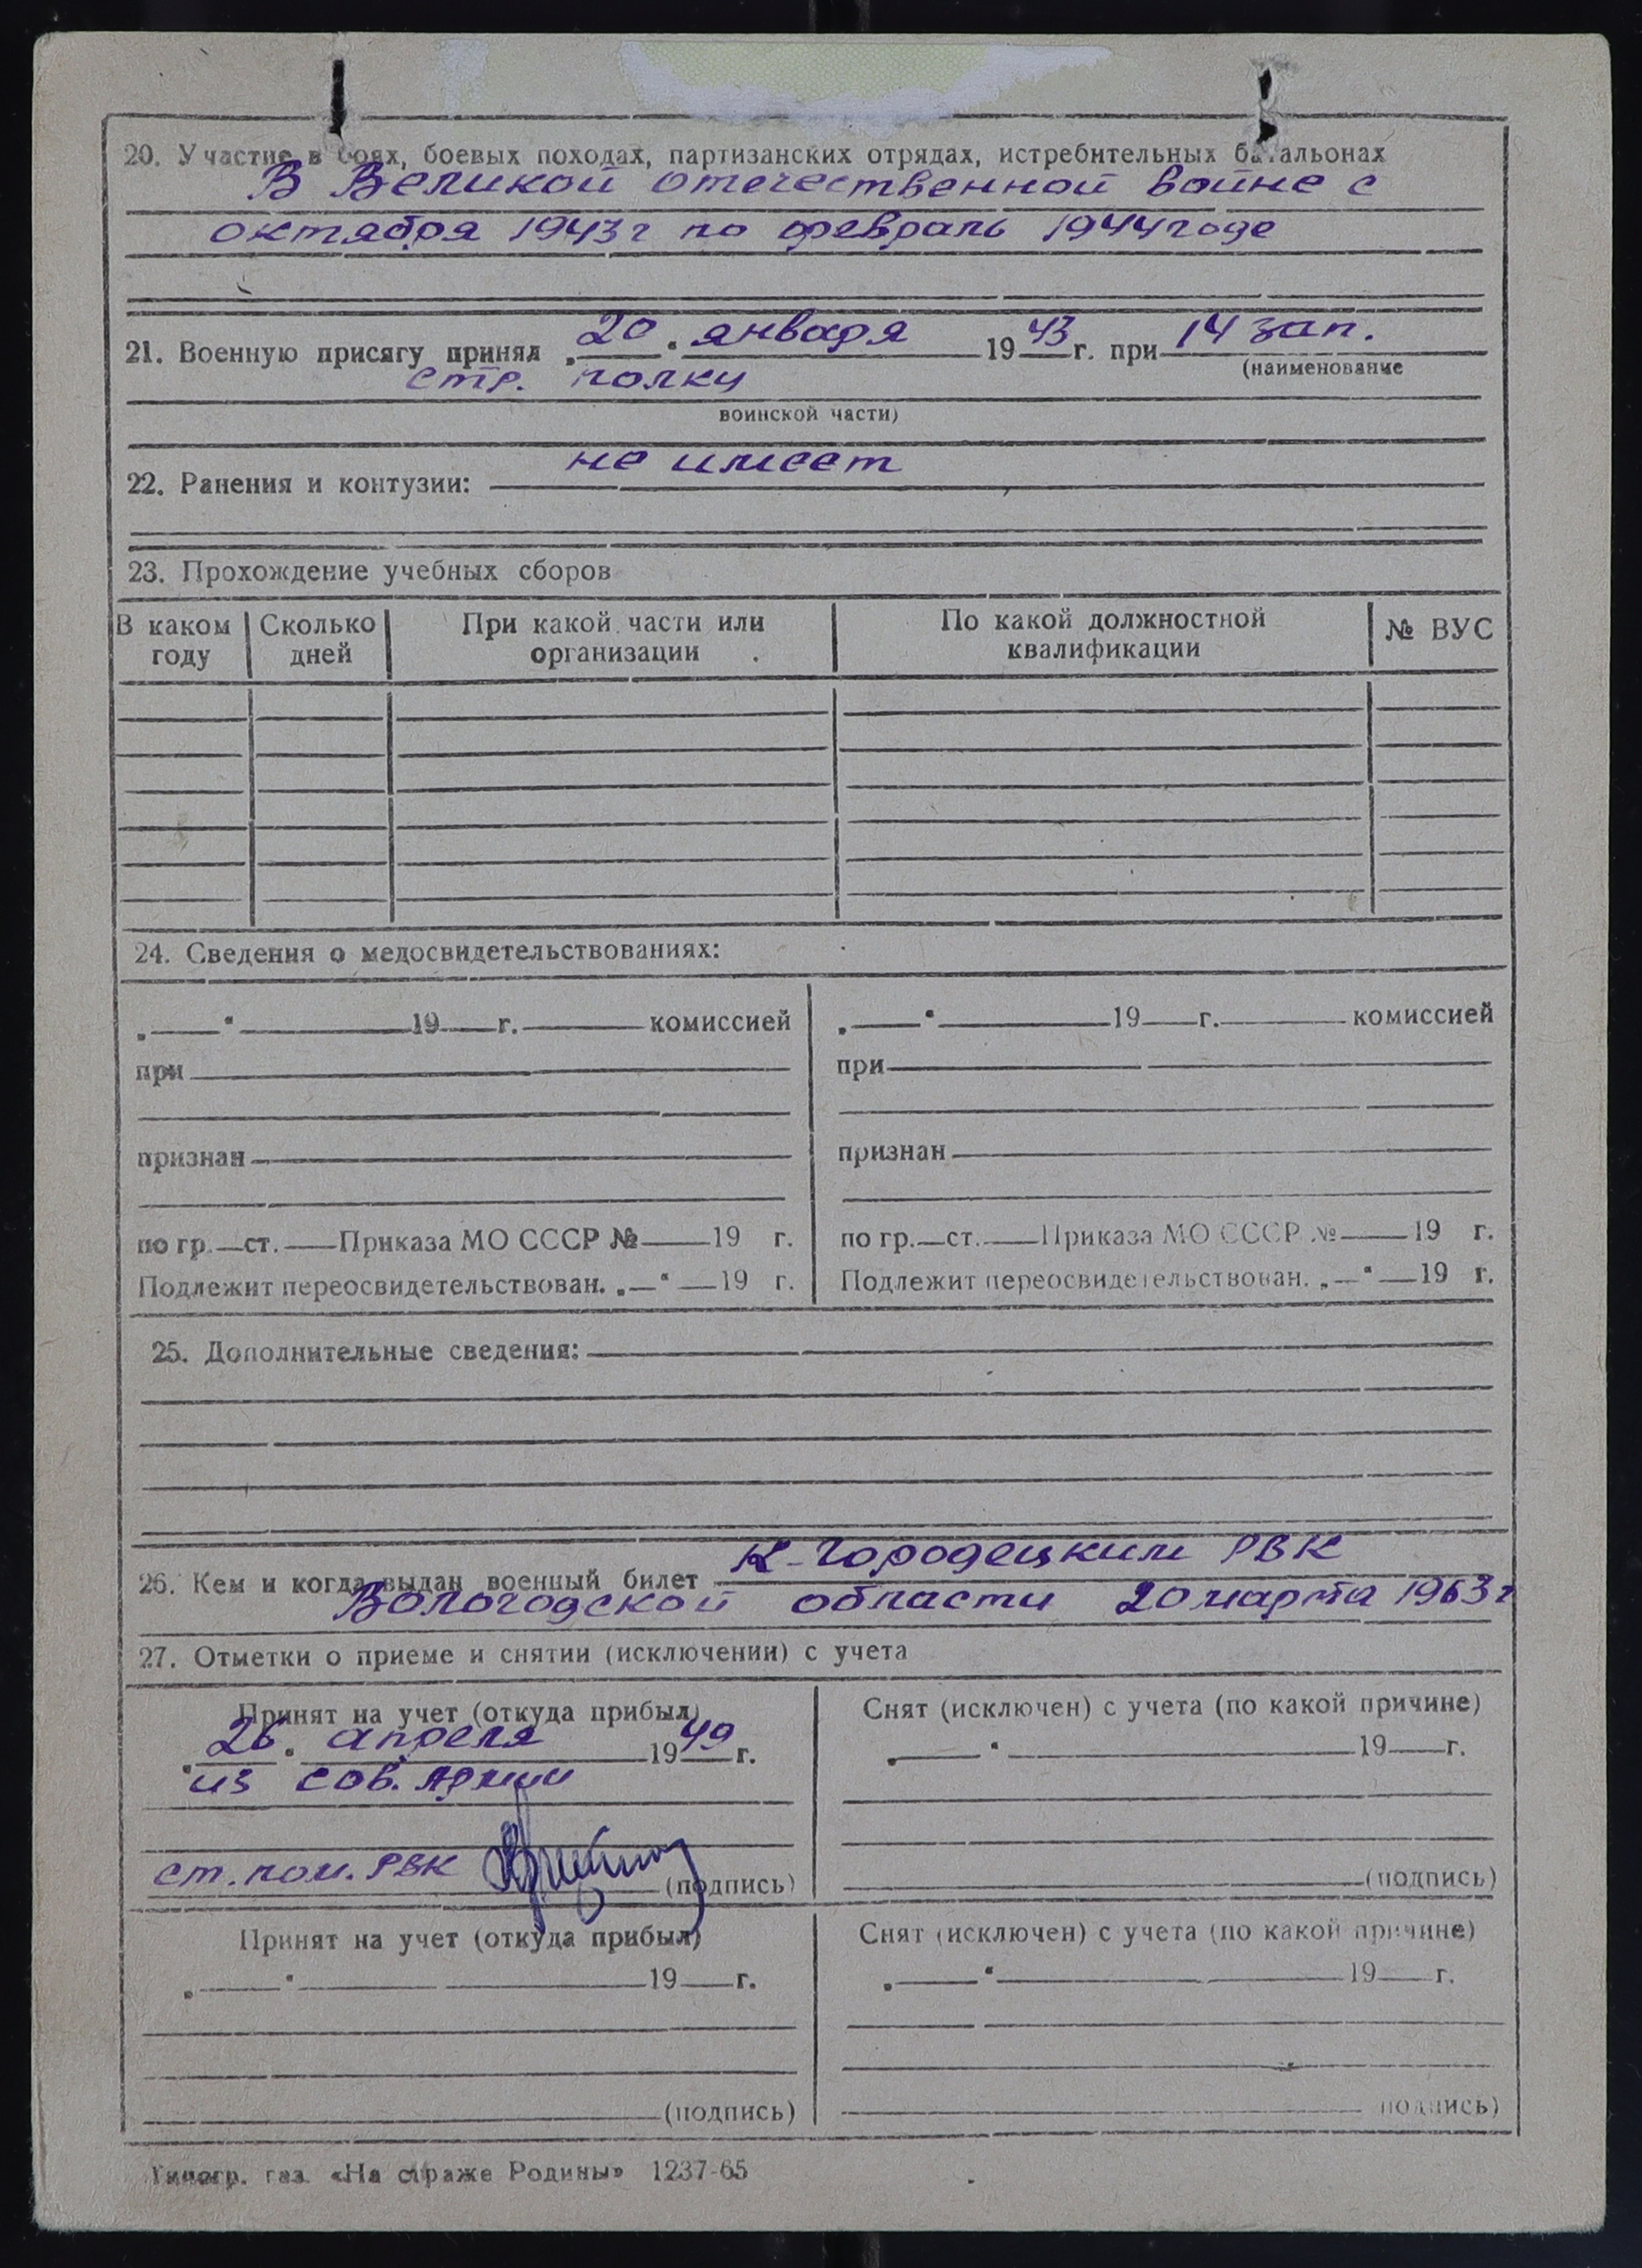 20. Участие в боях, боевых походах, партизанских отрядах, истребительных батальонах
В Великой отечественной войне с
октября 1943г по февраль 1944 годе
21. Военную присягу принял „20“ января 1943 г. при 14 зап.
(наименование
стр. полку
воинской части)
22. Ранения и контузии: не имеет
23. Прохождение учебных сборов
В каком году Сколько дней При какой части или организации По какой должностной квалификации № ВУС
24. Сведения о медосвидетельствованиях:
„ “ 19 г. комиссией „ “ 19 г. комиссией
при при
признан признан
по гр. ст. Приказа МО СССР № 19 г. по гр. ст. Приказа МО СССР № 19 г.
Подлежит переосвидетельствован. „ “ 19 г. Подлежит переосвидетельствован. „ “ 19 г.
25. Дополнительные сведения:
26. Кем и когда выдан военный билет К-Городецким РВК
Вологодской области 20 марта 1963 г
27. Отметки о приеме и снятии (исключении) с учета
Принят на учет (откуда прибыл) Снят (исключен) с учета (по какой причине)
„26“ апреля 1949 г. „ “ 19 г.
из сов. Армии
ст. пом. РВК (подпись) (подпись)
Принят на учет (откуда прибыл) Снят (исключен) с учета (по какой причине)
„ “ 19 г. „ “ 19 г.
(подпись) подпись)
Типогр. газ. «На страже Родины» 1237-65